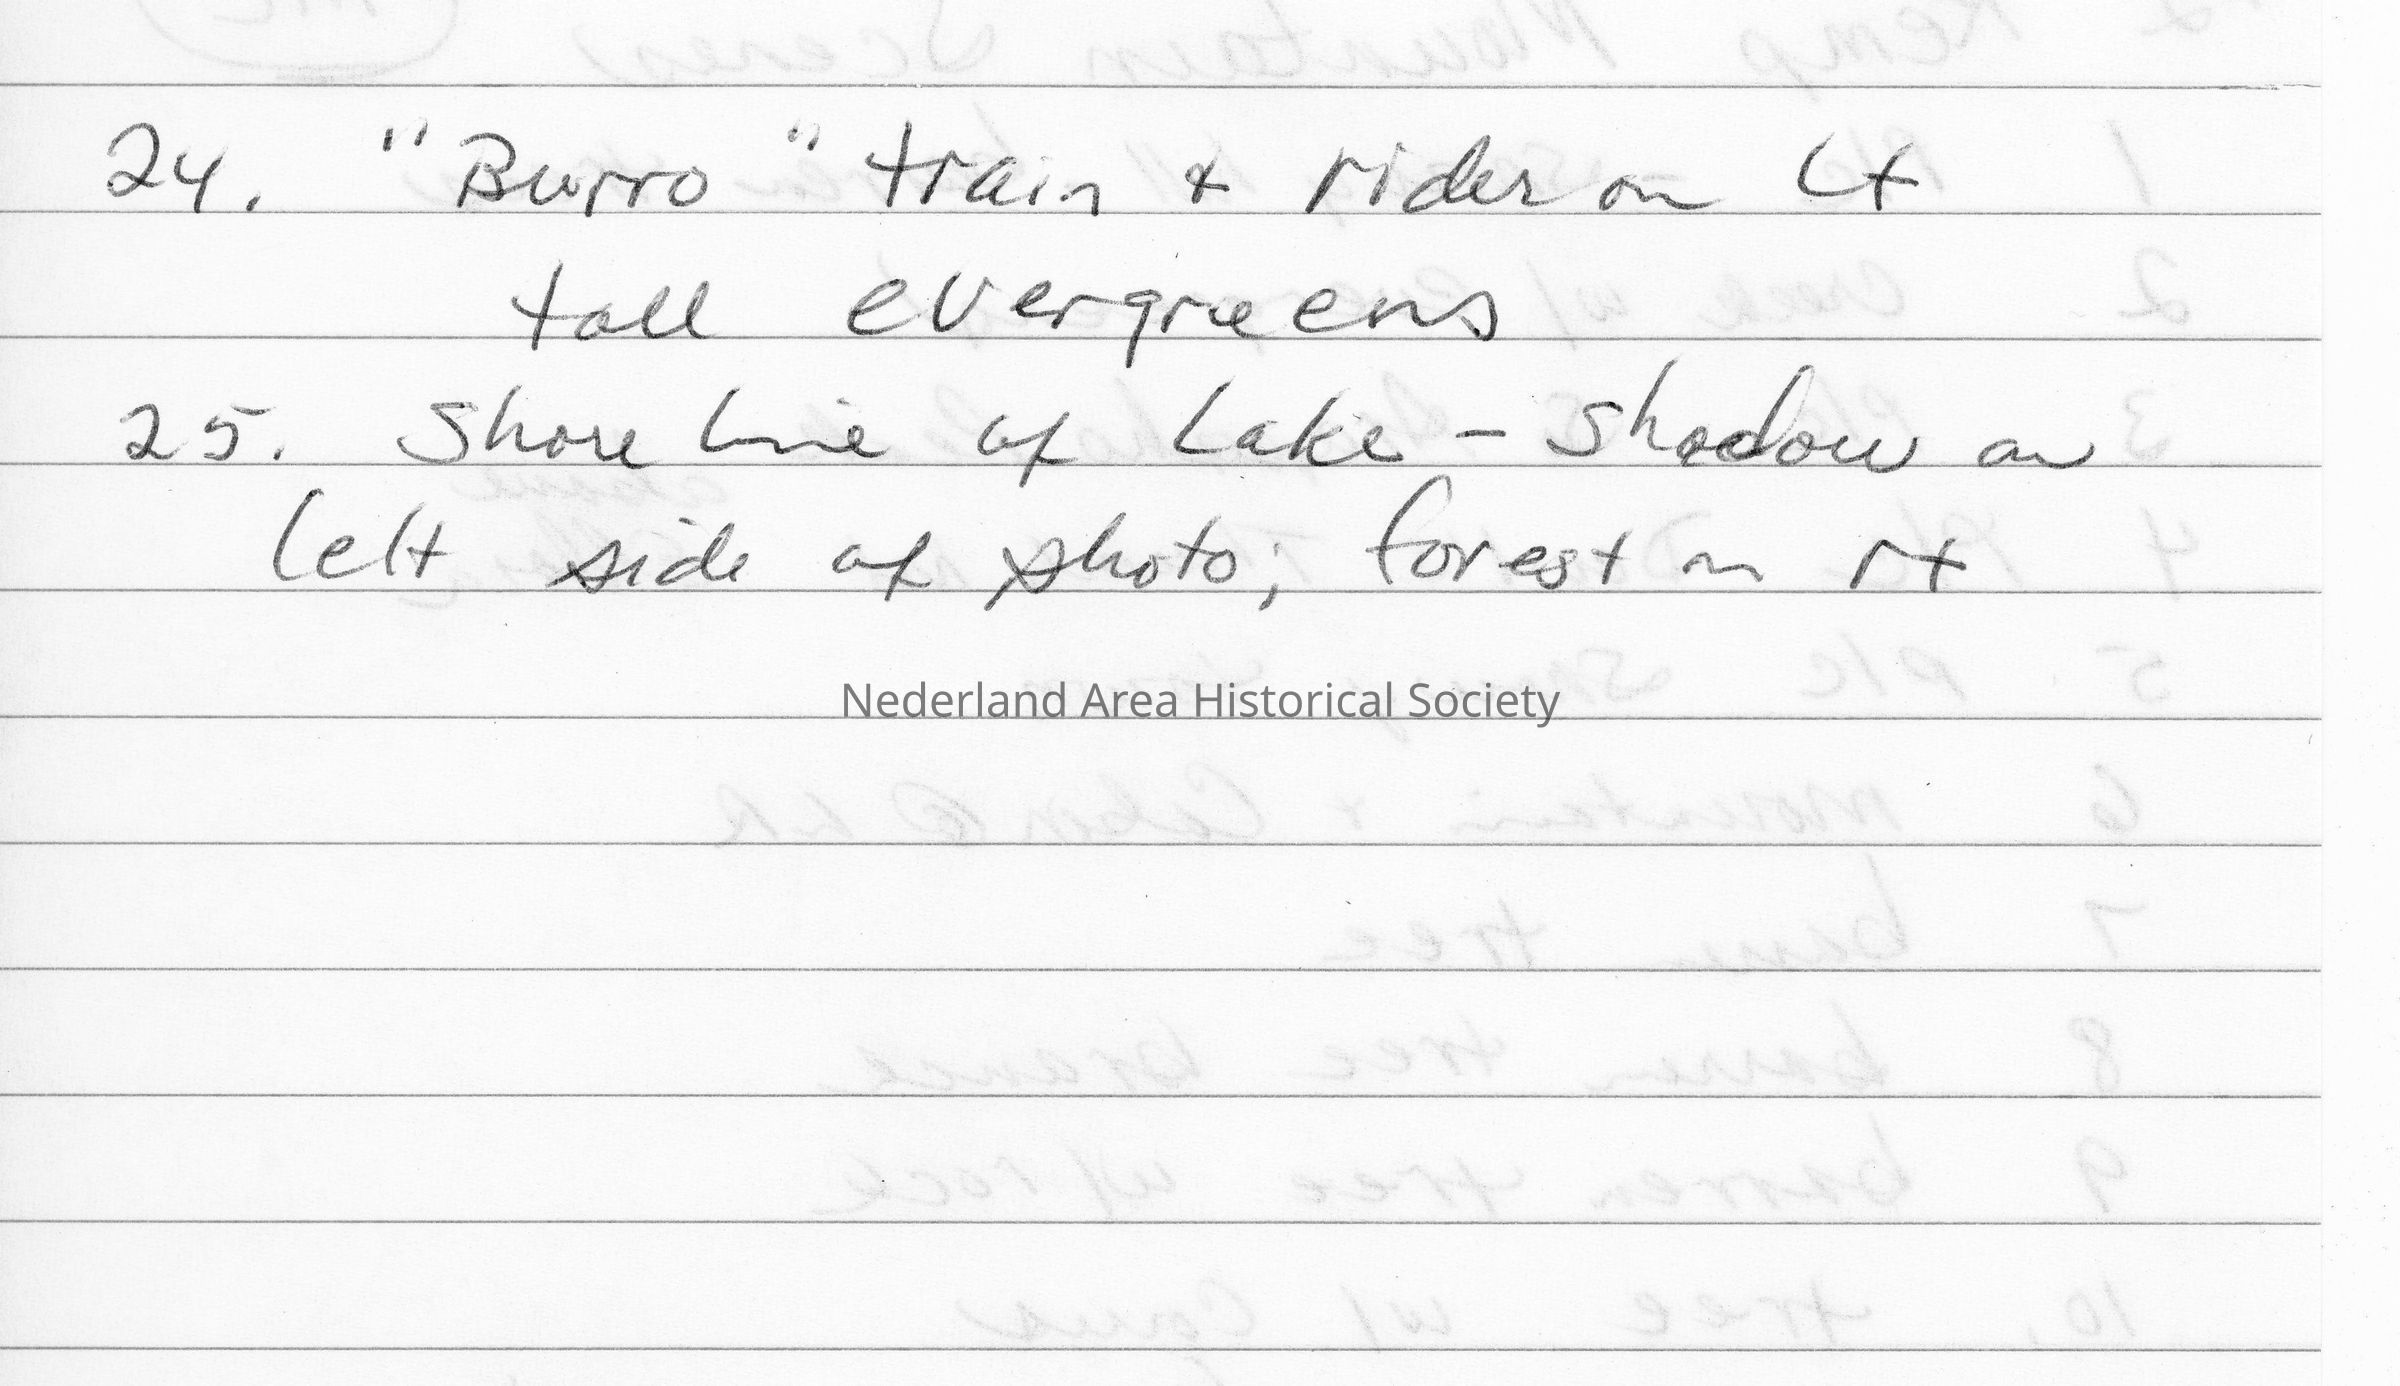 24. "Burro" train & rider on Lt
tall evergreens
25. Shore line of Lake - Shadow on
left side of photo; forest on rt
Nederland Area Historical Society